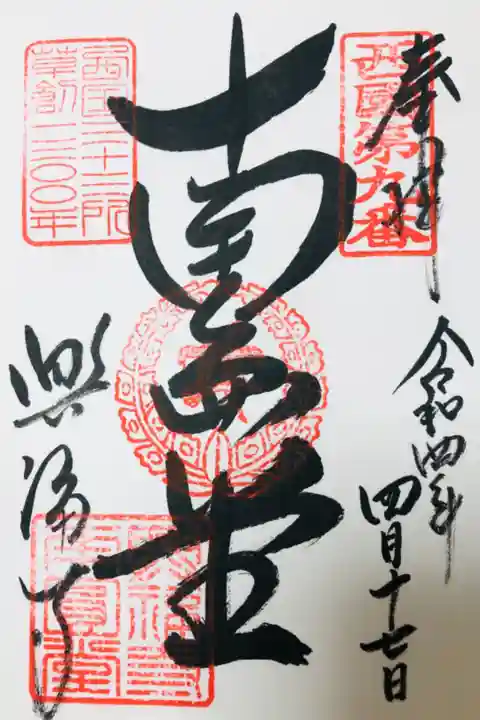 奉拝
西國第九番
令和四年
四月十七日
南圓堂
西国三十三所
草創一三〇〇年
興福寺